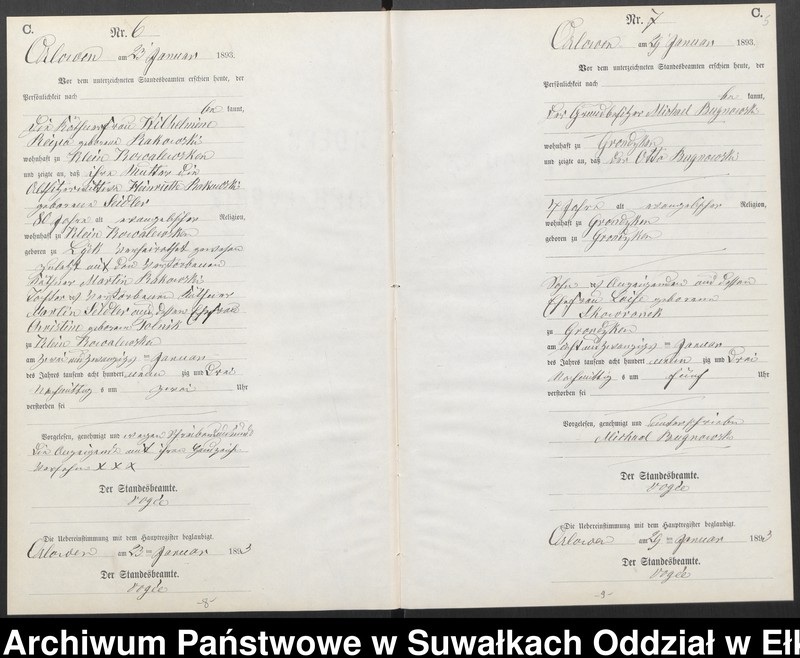 C.
Nr. 6
Orlowen am 23 Januar 1893.
Vor dem unterzeichneten Standesbeamten erschien heute, der
Persönlichkeit nach
be kannt,
die Käthnerfrau Wilhelmine
geborene Rakowski
wohnhaft zu Klein Kowalewsken
und zeigte an, daß ihre Mutter die
Altsitzerwittwe Heinriette Rakowski
geborene Sedler
80 Jahre alt evangelischer Religion,
wohnhaft zu Klein Kowalewsken
geboren zu Lyck verheirathet gewesen
zuletzt mit dem verstorbenen
Käthner Martin Rakowski
Tochter der verstorbenen Käthner
Martin Sedler und dessen Ehefrau
Christine geborene
zu Klein Kowalewsken
am zwei und zwanzigsten Januar
des Jahres tausend acht hundert neun zig und Drei
Nachmittag s um zwei Uhr
verstorben sei
Vorgelesen, genehmigt und wegen Schreibensunkunde
die Anzeigende mit ihrem Handzeichen
versehen x x x
Der Standesbeamte.
Vogée
Die Uebereinstimmung mit dem Hauptregister beglaubigt.
Orlowen am 23ten Januar 1893
Der Standesbeamte.
Vogée
-8-
C.
Nr. 7
Orlowen am 29 Januar 1893.
Vor dem unterzeichneten Standesbeamten erschien heute, der
Persönlichkeit nach
be kannt,
der Grundbesitzer Michael Bugnowski
wohnhaft zu Grondzken
und zeigte an, daß der Otto Bugnowski
7 Jahre alt evangelischer Religion,
wohnhaft zu Grondzken
geboren zu Grondzken
Sohn des Anzeigenden und dessen
Ehefrau Luise geborene
Skowronek
zu Grondzken
am acht und zwanzigsten Januar
des Jahres tausend acht hundert neun zig und Drei
Nachmittag s um fünf Uhr
verstorben sei
Vorgelesen, genehmigt und unterschrieben
Michael Bugnowski
Der Standesbeamte.
Vogée
Die Uebereinstimmung mit dem Hauptregister beglaubigt.
Orlowen am 29ten Januar 1893
Der Standesbeamte.
Vogée
-9-
Archiwum Państwowe w Suwałkach Oddział w Ełk